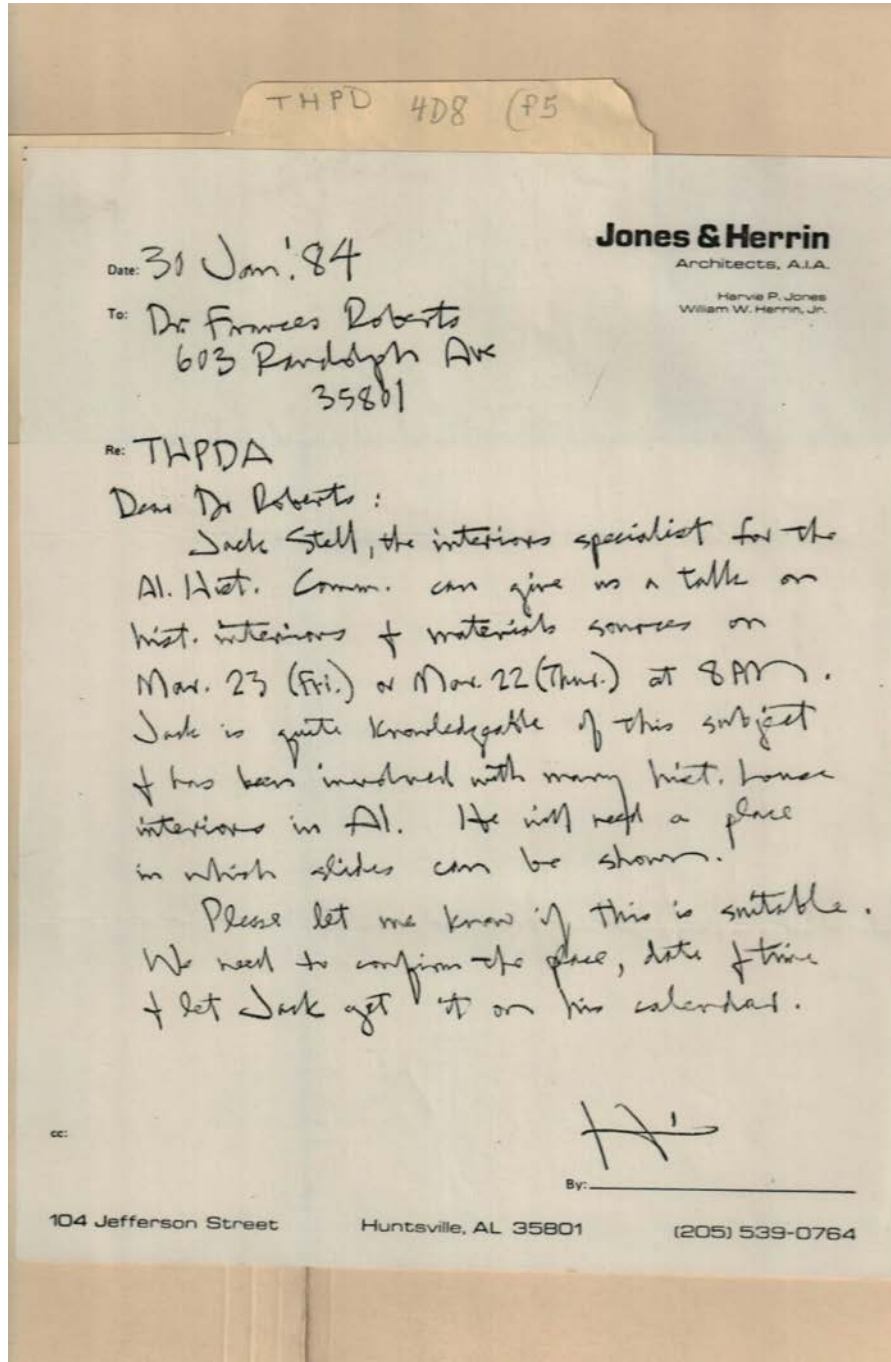 THPD 4D8 (f5
Jones & Herrin
Architects, A.I.A.
Harvie P. Jones
William W. Herrin, Jr.
Date: 30 Jan. '84
To: Dr. Frances Roberts
603 Randolph Ave
35801
Re: THPDA
Dear Dr Roberts:
Jack Stell, the interiors specialist for the
Al. Hist. Comm. can give us a talk on
hist. interiors + materials sources on
Mar. 23 (Fri.) or Mar. 22 (Thur.) at 8 PM.
Jack is quite knowledgeable of this subject
+ has been involved with many hist. house
interiors in Al. He will need a place
in which slides can be shown.
Please let me know if this is suitable.
We need to confirm the place, date + time
+ let Jack get it on his calendar.
cc:
By:
104 Jefferson Street Huntsville, AL 35801 (205) 539-0764